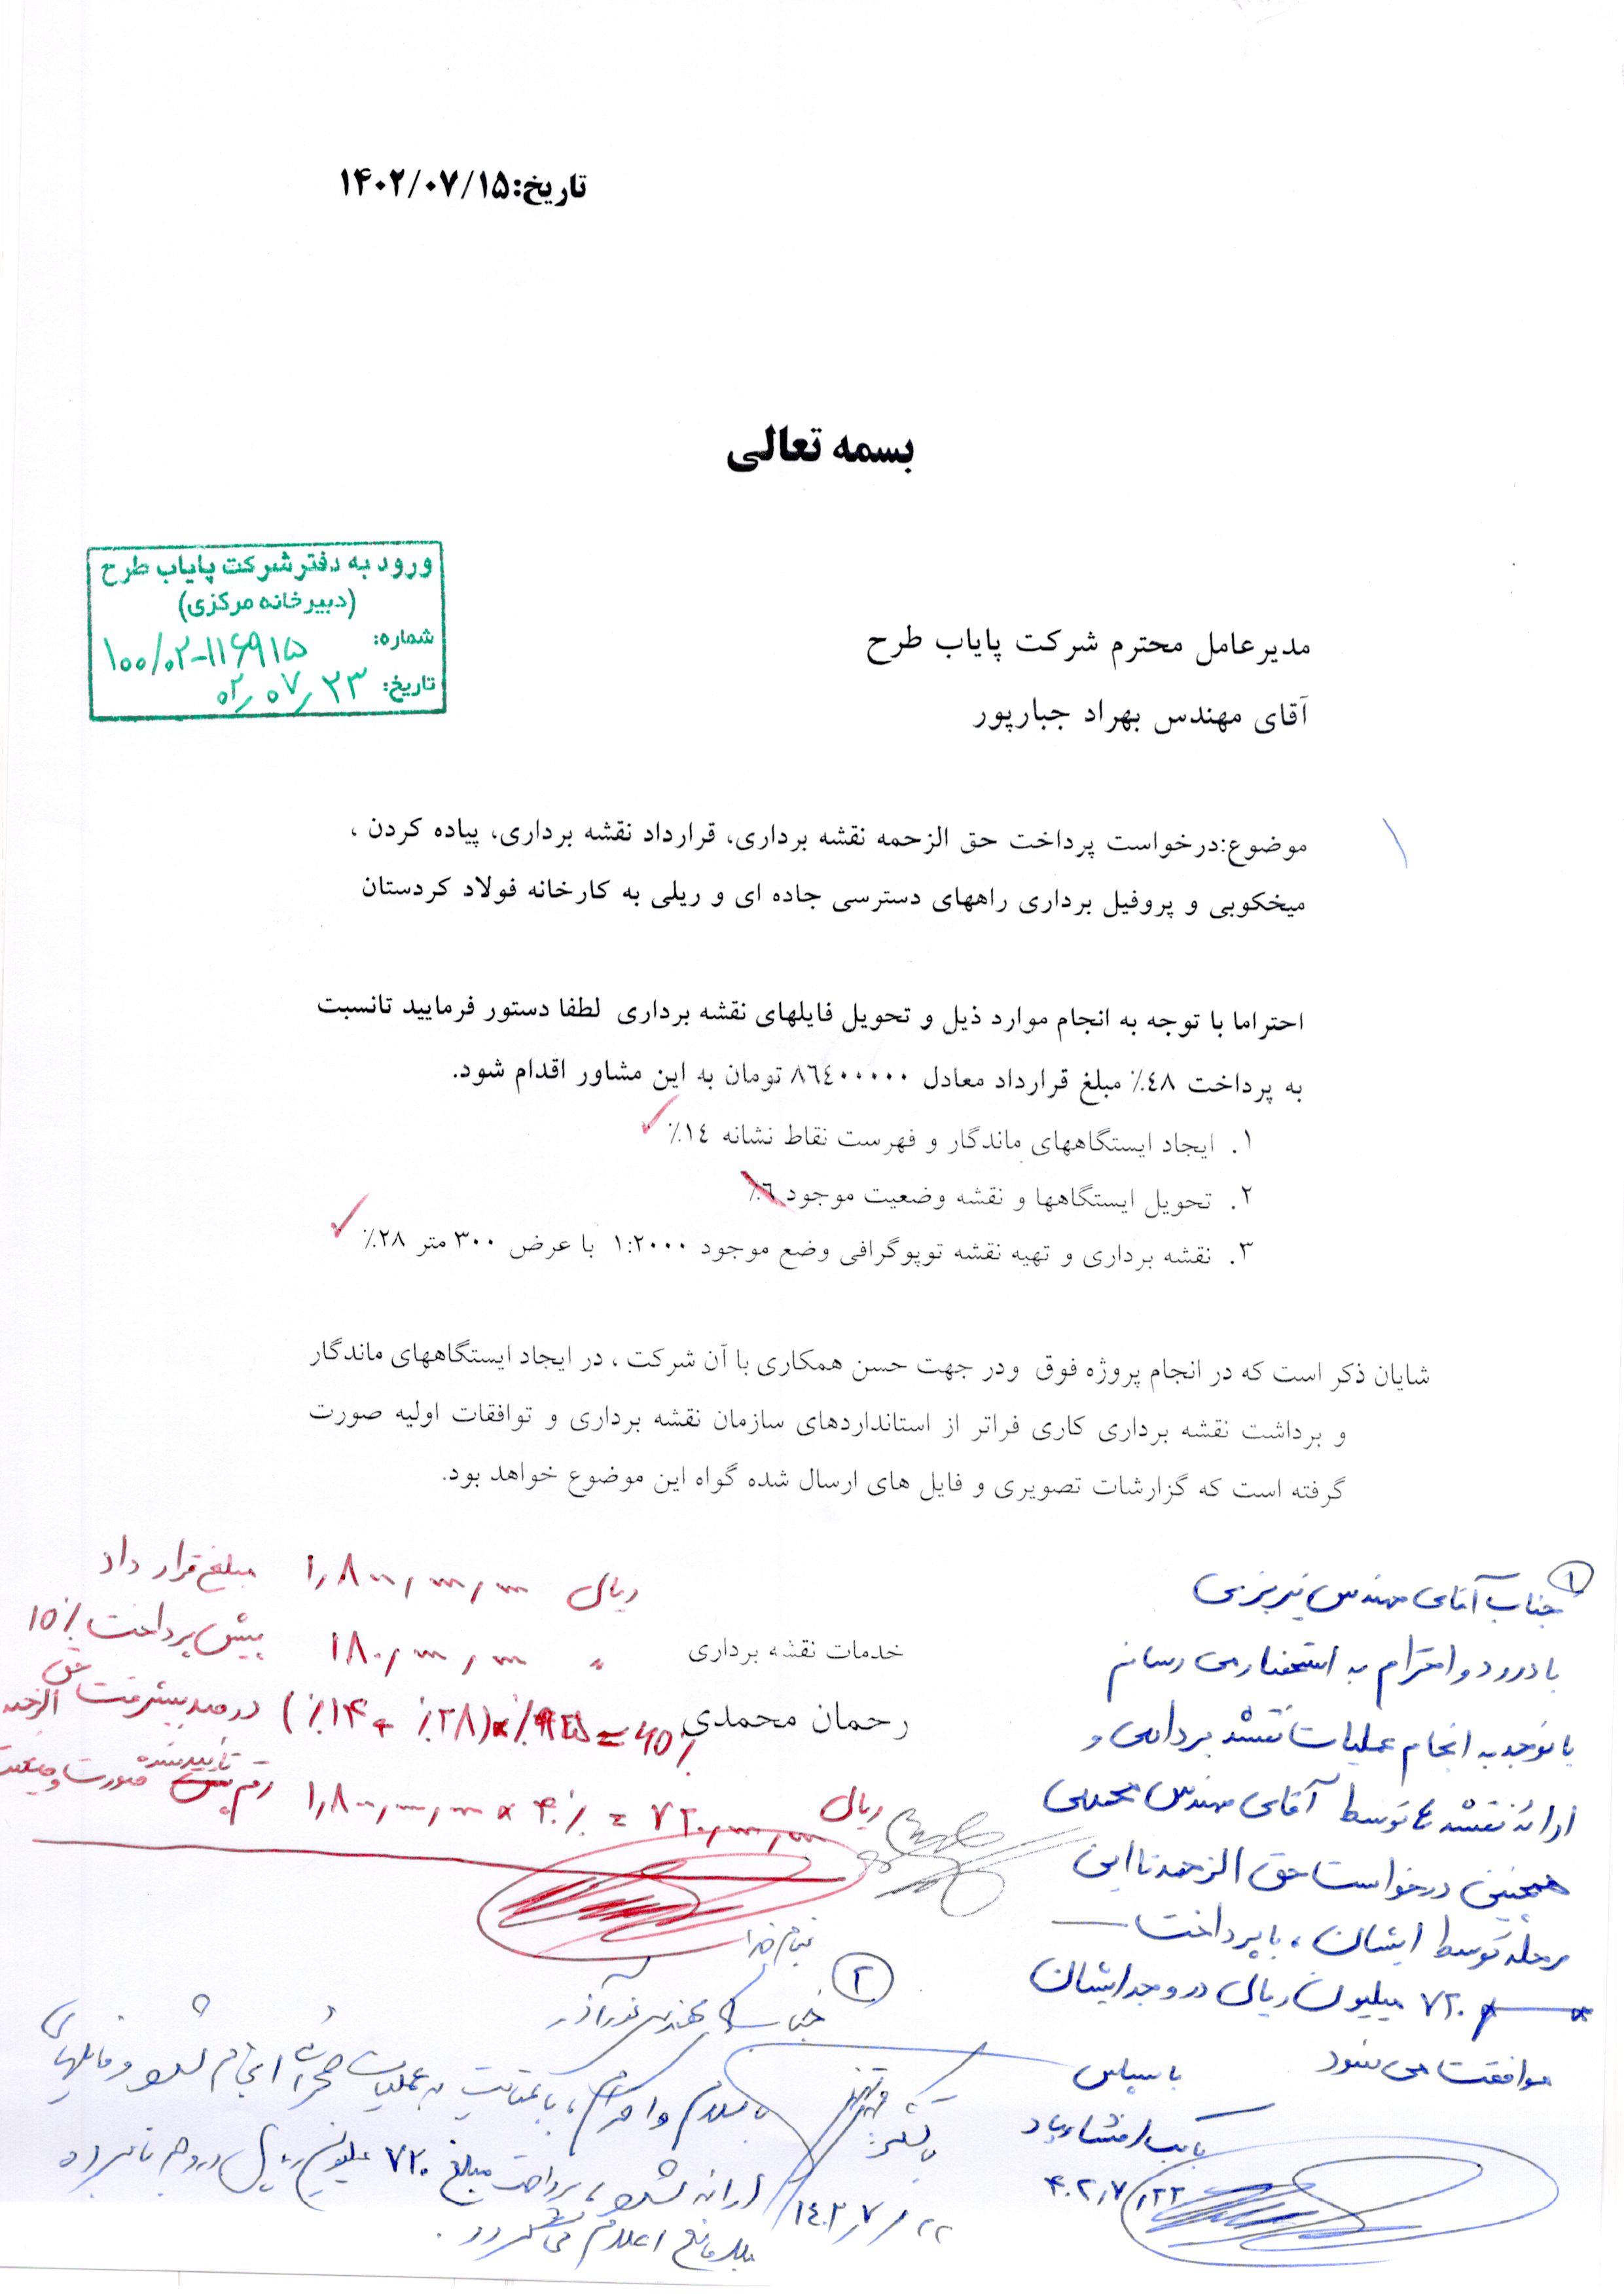 تاریخ:۱۴۰۲/۰۷/۱۵
بسمه تعالی
ورود به دفتر شرکت پایاب طرح
(دبیرخانه مرکزی)
شماره: ۱۰۰/۰۲-۱۱۶۹۱۵
تاریخ: ۰۲/۰۷/۲۳
مدیرعامل محترم شرکت پایاب طرح
آقای مهندس بهراد جبارپور
موضوع:درخواست پرداخت حق الزحمه نقشه برداری، قرارداد نقشه برداری، پیاده کردن ،
میخکوبی و پروفیل برداری راههای دسترسی جاده ای و ریلی به کارخانه فولاد کردستان
احتراما با توجه به انجام موارد ذیل و تحویل فایلهای نقشه برداری لطفا دستور فرمایید تانسبت
به پرداخت ٤٨٪ مبلغ قرارداد معادل ٨٦٤٠٠٠٠٠ تومان به این مشاور اقدام شود.
۱. ایجاد ایستگاههای ماندگار و فهرست نقاط نشانه ١٤٪
۲. تحویل ایستگاهها و نقشه وضعیت موجود ٦٪
۳. نقشه برداری و تهیه نقشه توپوگرافی وضع موجود ۱:۲۰۰۰ با عرض ۳۰۰ متر ۲۸٪
شایان ذکر است که در انجام پروژه فوق ودر جهت حسن همکاری با آن شرکت ، در ایجاد ایستگاههای ماندگار
و برداشت نقشه برداری کاری فراتر از استانداردهای سازمان نقشه برداری و توافقات اولیه صورت
گرفته است که گزارشات تصویری و فایل های ارسال شده گواه این موضوع خواهد بود.
خدمات نقشه برداری
رحمان محمدی
مبلغ قرارداد ۱,۸۰۰,۰۰۰,۰۰۰ ریال
پیش پرداخت ۱۰٪ ۱۸۰,۰۰۰,۰۰۰ "
درصد پیشرفت حق الزحمه (۱۴٪ + ۲۸٪)
تأیید شده صورت وضعیت ۱,۸۰۰,۰۰۰,۰۰۰ × ۴۰٪ = ۷۲۰,۰۰۰,۰۰۰ ریال
۱
جناب آقای مهندس تبریزی
با درود و احترام به استحضار می رساند
با توجه به انجام عملیات نقشه برداری و
ارائه نقشه ها توسط آقای مهندس محمدی
همچنین درخواست حق الزحمه تا این
مرحله توسط ایشان ، با پرداخت
۷۲۰ میلیون ریال در وجه ایشان
موافقت می شود
با سپاس
بابک افشارپاد
۴۰۲/۷/۲۲
۲
بنام خدا
جناب آقای مهندس
با سلام و احترام ، با عنایت به عملیات صحرائی انجام شده و فایلهای
ارائه شده ، پرداخت مبلغ ۷۲۰ میلیون ریال در وجه نامبرده
بلامانع اعلام می گردد .
با تشکر
۱۴۰۲/۷/۲۲